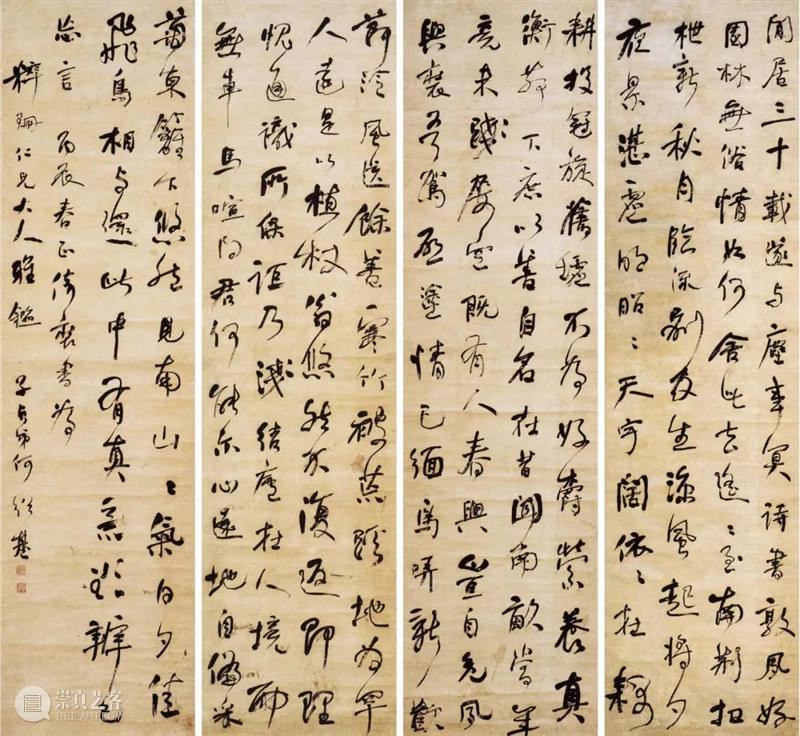 閒居三十載遂与塵事冥詩書敦風好
園林無俗情如何舍此去遙〻至南荊扣
枻新秋月臨流別友生涼風起將夕
夜景湛虛明昭〻天宇闊依〻在耦
耕投冠旋舊墟不為好爵縈養真
衡茅下庶以善自名在昔聞南畝當年
竟未踐屢空既有人春興豈自免夙
興裝吾駕啟塗情已緬鳥哢新歡
節泠風送餘善寒竹被荒蹊地為罕
人遠是以植杖翁悠然不復返即理
愧通識所保詎乃淺結廬在人境而
無車馬喧問君何能尔心遠地自偏采
菊東籬下悠然見南山〻氣日夕佳
飛鳥相与還此中有真意欲辨已
忘言 丙辰春正倚裝書為
粹珊仁兄大人雅鑑 子貞弟何紹基
崇真艺客
TRUEART.COM